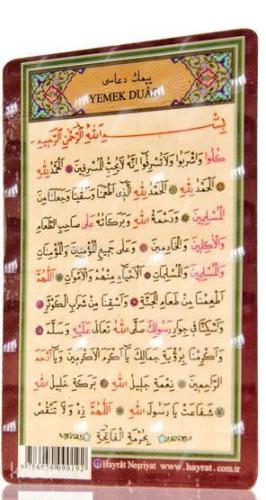 ییمك دعاسی
YEMEK DUASI
بِسْمِ اللهِ الرَّحْمٰنِ الرَّحِيمِ
كُلُوا وَاشْرَبُوا وَلَا تُسْرِفُوا اِنَّهُ لَا يُحِبُّ الْمُسْرِفِينَ ❁ اَلْحَمْدُ لِلّٰهِ
❁ اَلْحَمْدُ لِلّٰهِ ❁ اَلْحَمْدُ لِلّٰهِ الَّذِى اَطْعَمَنَا وَسَقَينَا وَجَعَلَنَا مِنَ
الْمُسْلِمِينَ ❁ وَنِعْمَةُ اللهِ وَبَرَكَاتُهُ عَلَى صَاحِبِ الطَّعَامِ
وَالْاٰكِلِينَ وَالْخَادِمِينَ ❁ وَعَلَى جَمِيعِ الْمُؤْمِنِينَ وَالْمُؤْمِنَاتِ
وَالْمُسْلِمِينَ وَالْمُسْلِمَاتِ ❁ اَلْاَحْيَاءِ مِنْهُمْ وَالْاَمْوَاتِ ❁ اَللّٰهُمَّ
اَطْعِمْنَا مِنْ طَعَامِ الْجَنَّةِ ❁ وَاَسْقِنَا مِنْ شَرَابِ الْكَوْثَرِ ❁
وَاَسْكِنَّا فِى جِوَارِ رَسُولِكَ صَلَّى اللهُ تَعَالَى عَلَيْهِ وَسَلَّمَ ❁
وَاَكْرِمْنَا بِرُؤْيَةِ جَمَالِكَ يَا اَكْرَمَ الْاَكْرَمِينَ وَيَا اَرْحَمَ
الرَّاحِمِينَ ❁ نِعْمَةِ جَلِيلُ اللهِ ❁ بَرَكَةِ خَلِيلُ اللهِ
❁ شَفَاعَتْ يَا رَسُولَ اللهِ ❁ اَللّٰهُمَّ زِدْ وَلَا تَنْقُصْ
بِحُرْمَةِ الْفَاتِحَةِ
Hayrât Neşriyat www.hayrat.com.tr